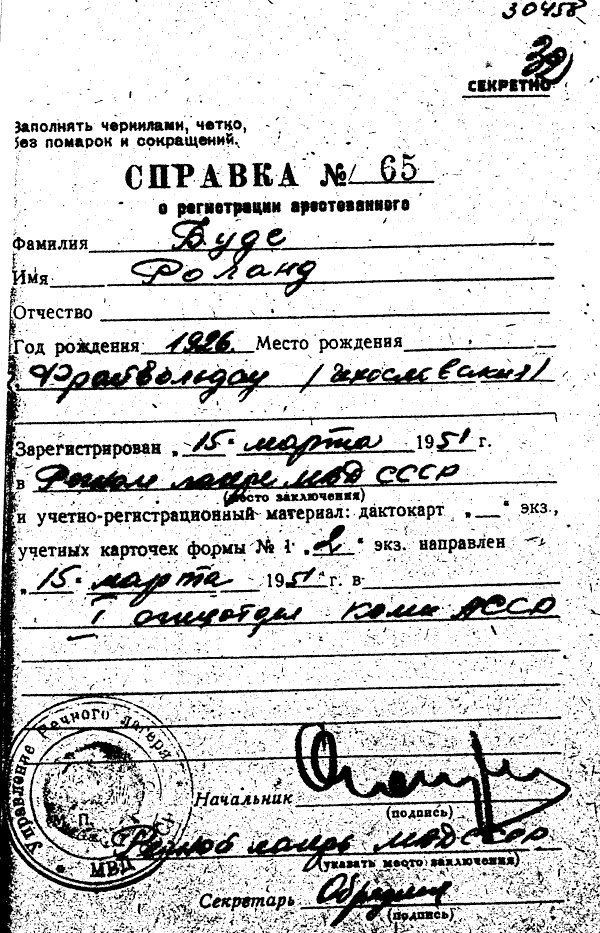 30458
39
СЕКРЕТНО
Заполнять чернилами, четко,
без помарок и сокращений.
СПРАВКА № 65
о регистрации арестованного
Фамилия Буде
Имя Роланд
Отчество
Год рождения 1926. Место рождения
Фрайвольдау
Зарегистрирован „15" марта 1951 г.
в Речном лагере МВД СССР
(место заключения)
и учетно-регистрационный материал: дактокарт „__" экз.,
учетных карточек формы № 1 „2" экз. направлен
„15" марта 1951 г. в
I спецотдел Коми АССР
Управление Речного лагеря
М. П.
МВД
Начальник
(подпись)
Речной лагерь МВД СССР
(указать место заключения)
Секретарь
(подпись)